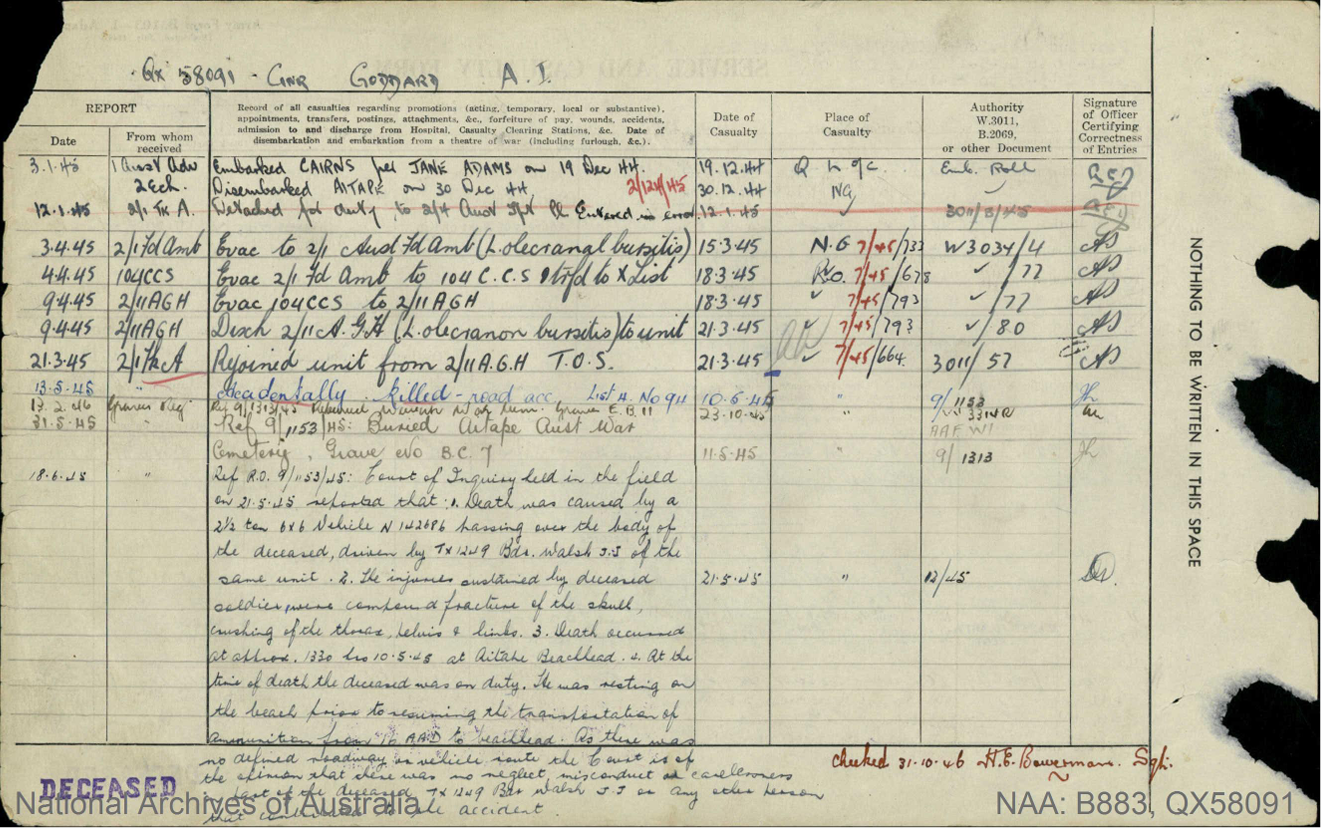 QX 58091 GNR GODDARD A. J.
REPORT
Date
From whom received
Record of all casualties regarding promotions (acting, temporary, local or substantive), appointments, transfers, postings, attachments, &c., forfeiture of pay, wounds, accidents, admission to and discharge from Hospital, Casualty Clearing Stations, &c. Date of disembarkation and embarkation from a theatre of war (including furlough, &c.).
Date of Casualty
Place of Casualty
Authority W.3011, B.2069, or other Document
Signature of Officer Certifying Correctness of Entries
3.1.45 1 Aust Adv Embarked CAIRNS per JANE ADAMS on 19 Dec 44. 19.12.44 Q L of C Emb. Roll
2 Ech. Disembarked AITAPE on 30 Dec 44 30.12.44 NG
12.1.45 2/1 Tk A. Detached for duty to 2/4 Aust Entered in error 12.1.45 3011/3/45
3.4.45 2/1 Fd Amb Evac to 2/1 Aust Fd Amb (L. olecranal bursitis) 15.3.45 N.G 7/45/733 W3034/4
4.4.45 104CCS Evac 2/1 Fd Amb to 104 C.C.S trfd to X List 18.3.45 7/45/678 /77
9.4.45 2/11AGH Evac 104CCS to 2/11 AGH 18.3.45 7/45/793 /77
9.4.45 2/11AGH Disch 2/11 A.G.H (L. olecranon bursitis) to unit 21.3.45 7/45/793 /80
21.3.45 2/1 Tk A Rejoined unit from 2/11 A.G.H T.O.S. 21.3.45 7/45/664 3011/57
13.5.45 " Accidentally killed - road acc. List A. No 94 10.5.45 " 9/1153
13.2.46 Graves Reg. Ref 9/1313/45 War Cem. Grave E.B.11 23.10.45 "
31.5.45 " Ref 9/1153/45: Buried Aitape Aust War
Cemetery, Grave No B.C. 7 11.5.45 " 9/1313
18.6.45 " Ref R.O. 9/1153/45: Court of Inquiry held in the field
on 21.5.45 reported that: 1. Death was caused by a
2½ ton 6x6 Vehicle N 142686 passing over the body of
the deceased, driven by TX1249 Bdr. Walsh J.J of the
same unit. 2. The injuries sustained by deceased 21.5.45 " 12/45
soldier were compound fracture of the skull,
crushing of the thorax, pelvis & limbs. 3. Death occurred
at approx. 1330 hrs 10.5.45 at Aitape Beachhead. 4. At the
time of death the deceased was on duty. He was resting on
the beach prior to resuming the transportation of
ammunition from to beachhead. As there was
no defined roadway or vehicle route the Court is of
the opinion that there was no neglect, misconduct or carelessness
part of the deceased TX1249 Bdr Walsh J.J or any other person
that contributed to the accident.
checked 31.10.46 H.E. Bowerman. Sgt.
DECEASED
NOTHING TO BE WRITTEN IN THIS SPACE
National Archives of Australia
NAA: B883, QX58091